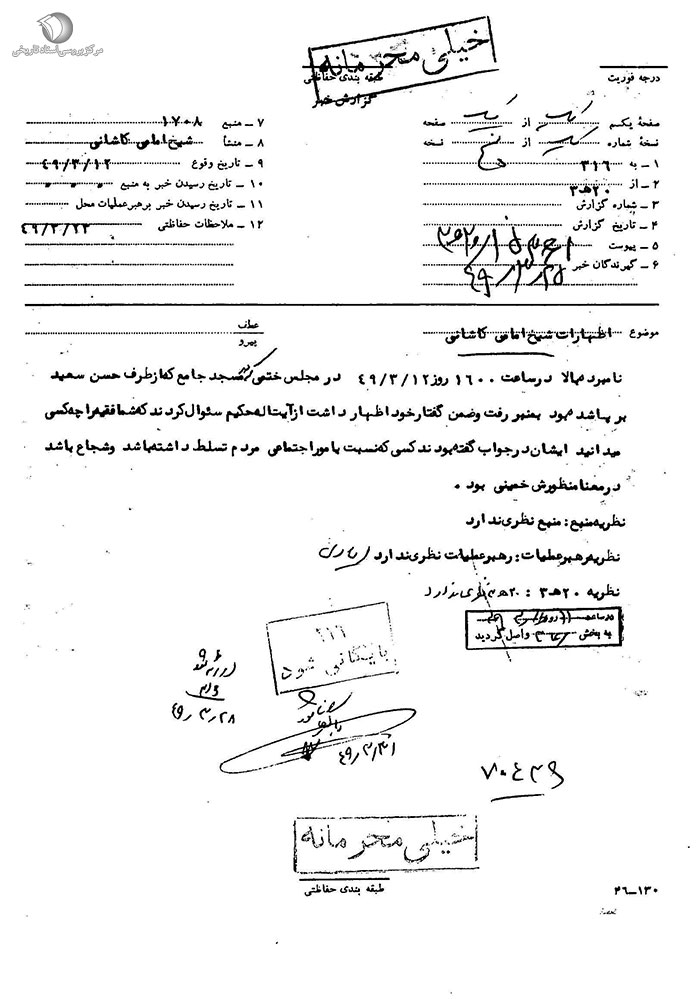 مرکز بررسی اسناد تاریخی
خیلی محرمانه
درجه فوریت
طبقه بندی حفاظتی
گزارش خبر
صفحهٔ یکم یک از یک صفحه
نسخهٔ شماره یک از نسخه
۱ ـ به ۳۱۶
۲ ـ از ۲۰هـ۳
۳ ـ شماره گزارش
۴ ـ تاریخ گزارش
۵ ـ پیوست
۶ ـ گیرندگان خبر
۷ ـ منبع ۱۷۰۸
۸ ـ منشأ شیخ امامی کاشانی
۹ ـ تاریخ وقوع ۴۹/۳/۱۲
۱۰ ـ تاریخ رسیدن خبر به منبع
۱۱ ـ تاریخ رسیدن خبر برهبرعملیات محل
۱۲ ـ ملاحظات حفاظتی ۴۹/۳/۲۳
موضوع اظهارات شیخ امامی کاشانی
عطف
پیرو
نامبرده بالا در ساعت ۱۶۰۰ روز ۴۹/۳/۱۲ در مجلس ختمی که در مسجد جامع که از طرف حسن سعید
برپا شده بود بمنبر رفت و ضمن گفتار خود اظهار داشت از آیت اله حکیم سئوال کردند که شما فقیه را چه کسی
میدانید ایشان در جواب گفته بودند کسی که نسبت بامور اجتماعی مردم تسلط داشته باشد و شجاع باشد
در معنا منظورش خمینی بود .
نظریه منبع : منبع نظری ندارد
نظریه رهبر عملیات : رهبر عملیات نظری ندارد
نظریه ۲۰هـ۳ : ۲۰هـ۳ نظری ندارد
در ساعت روز
به بخش واصل گردید
۳۱۶
بایگانی شود
۴۹/۳/۲۸
۴۹/۳/۳۱
۷۰۴۳۹
خیلی محرمانه
طبقه بندی حفاظتی
۲۶ـ۱۳۰